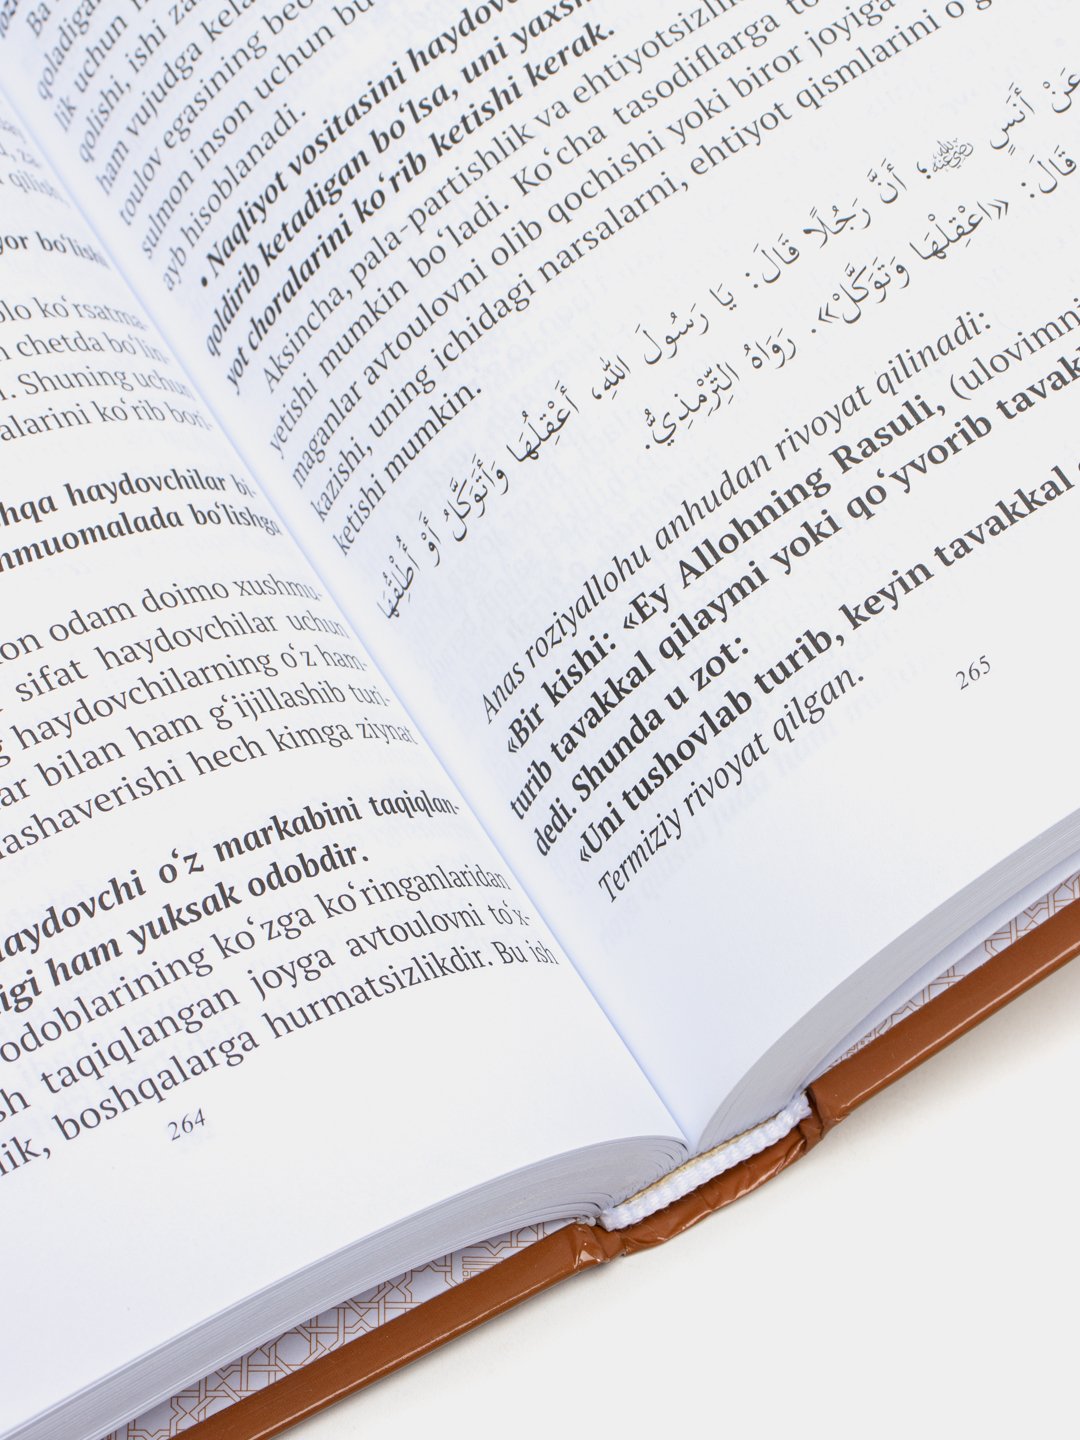 yor bo‘lishi
olo ko‘rsatma-
chetda bo‘lin-
Shuning uchun
alarini ko‘rib bori-
shqa haydovchilar bi-
hmuomalada bo‘lishga
odam doimo xushmu-
sifat haydovchilar uchun
haydovchilarning o‘z ham-
lar bilan ham g‘ijillashib turi-
lashaverishi hech kimga ziynat
haydovchi o‘z markabini taqiqlan-
ligi ham yuksak odobdir.
odoblarining ko‘zga ko‘ringanlaridan
sh taqiqlangan joyga avtoulovni to‘x-
lik, boshqalarga hurmatsizlikdir. Bu ish
264
qoladigan
lik uchun
qolishi, ishi
ham vujudga
toulov egasining
sulmon inson uchun bu
ayb hisoblanadi.
• Naqliyot vositasini haydov
qoldirib ketadigan bo‘lsa, uni yaxsh
yot choralarini ko‘rib ketishi kerak.
Aksincha, pala-partishlik va ehtiyotsizlik
yetishi mumkin bo‘ladi. Ko‘cha tasodiflarga
maganlar avtoulovni olib qochishi yoki biror joyiga
kazishi, uning ichidagi narsalarni, ehtiyot qismlarini o‘g
ketishi mumkin.
عَنْ أَنَسٍ رضي الله عنه؛ أَنَّ رَجُلًا قَالَ: يَا رَسُولَ اللهِ، أَعْقِلُهَا وَأَتَوَكَّلُ أَوْ أُطْلِقُهَا
قَالَ: «اعْقِلْهَا وَتَوَكَّلْ». رَوَاهُ التِّرْمِذِيُّ.
Anas roziyallohu anhudan rivoyat qilinadi:
«Bir kishi: «Ey Allohning Rasuli, (ulovimni
turib tavakkal qilaymi yoki qo‘yvorib tavakk
dedi. Shunda u zot:
«Uni tushovlab turib, keyin tavakkal
Termiziy rivoyat qilgan.
265